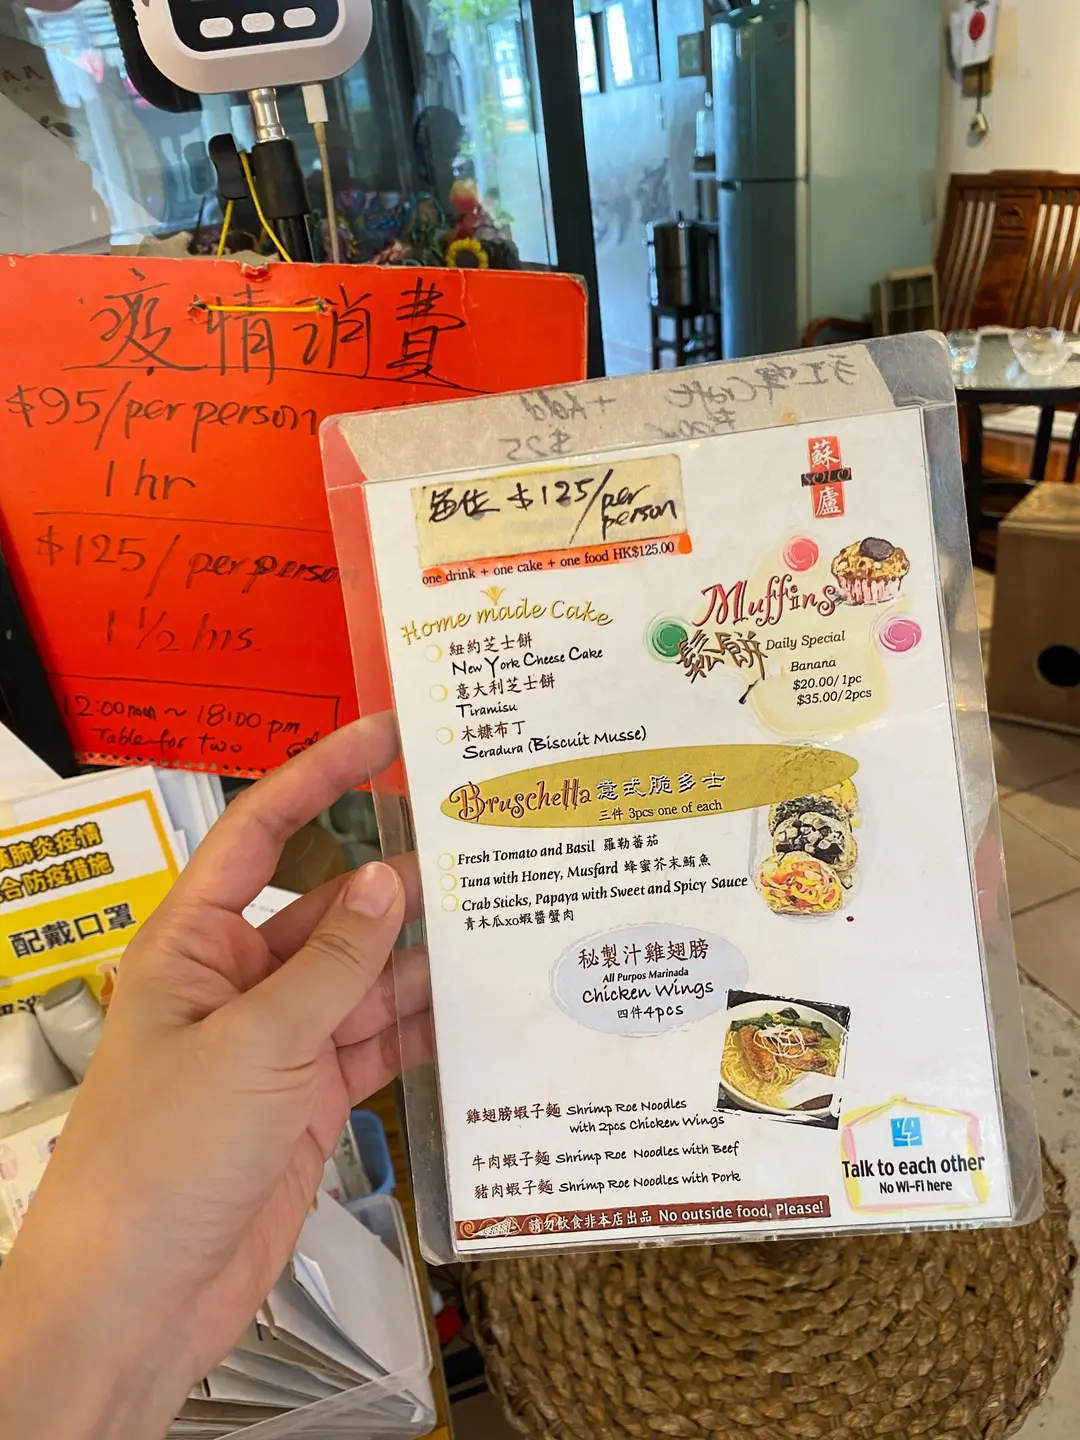 疫情消費
$95/per person
1 hr
$125/per person
1 1/2 hrs.
12:00noon ~ 18:00 pm
Table for two
肺炎疫情
合防疫措施
配戴口罩
$125/per person
one drink + one cake + one food HK$125.00
蘇
SOLO
盧
Home made Cake
紐約芝士餅
New York Cheese Cake
意大利芝士餅
Tiramisu
木糠布丁
Seradura (Biscuit Musse)
Muffins
鬆餅 Daily Special
Banana
$20.00/1pc
$35.00/2pcs
Bruschetta 意式脆多士
三件 3pcs one of each
Fresh Tomato and Basil 羅勒蕃茄
Tuna with Honey, Musfard 蜂蜜芥末鮪魚
Crab Sticks, Papaya with Sweet and Spicy Sauce
青木瓜xo蝦醬蟹肉
秘製汁雞翅膀
All Purpos Marinada
Chicken Wings
四件4pcs
雞翅膀蝦子麵 Shrimp Roe Noodles
with 2pcs Chicken Wings
牛肉蝦子麵 Shrimp Roe Noodles with Beef
豬肉蝦子麵 Shrimp Roe Noodles with Pork
請勿飲食非本店出品 No outside food, Please!
Talk to each other
No Wi-Fi here